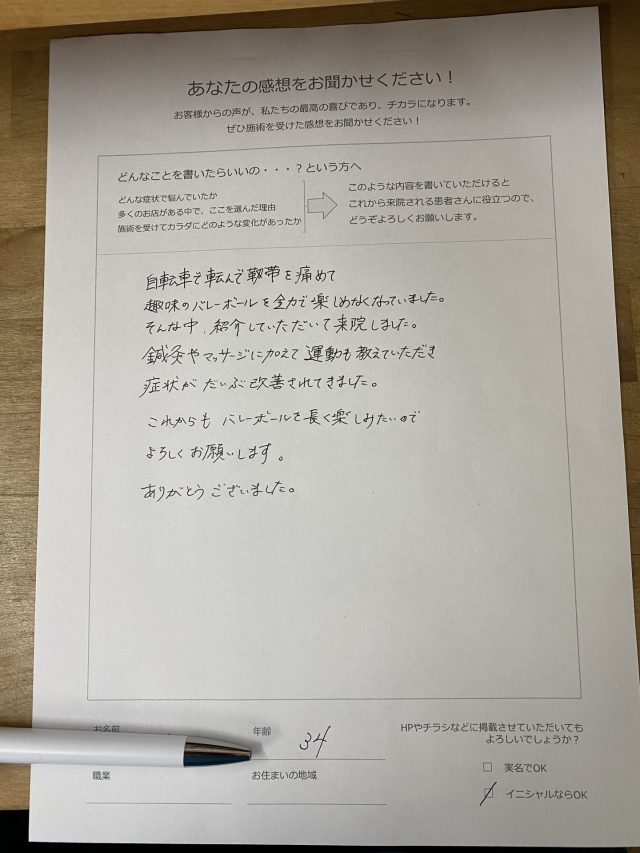 あなたの感想をお聞かせください！
お客様からの声が、私たちの最高の喜びであり、チカラになります。
ぜひ施術を受けた感想をお聞かせください！
どんなことを書いたらいいの・・・？という方へ
どんな症状で悩んでいたか
多くのお店がある中で、ここを選んだ理由
施術を受けてカラダにどのような変化があったか
このような内容を書いていただけると
これから来院される患者さんに役立つので、
どうぞよろしくお願いします。
自転車で転んで靱帯を痛めて
趣味のバレーボールを全力で楽しめなくなっていました。
そんな中、紹介していただいて来院しました。
鍼灸やマッサージに加えて運動も教えていただき
症状がだいぶ改善されてきました。
これからもバレーボールを長く楽しみたいので
よろしくお願いします。
ありがとうございました。
お名前
年齢
34
職業
お住まいの地域
HPやチラシなどに掲載させていただいても
よろしいでしょうか？
□ 実名でOK
☑ イニシャルならOK